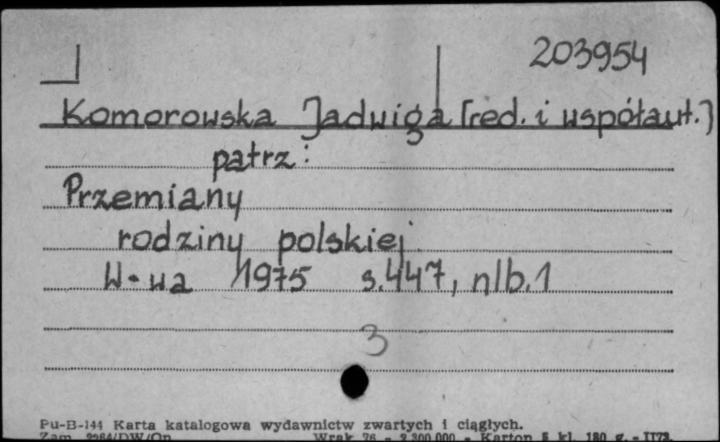 203954
Komorowska Jadwiga [red. i współaut.]
patrz:
Przemiany
rodziny polskiej.
W-wa 1975 s.447, nlb.1
3
Pu-B-144 Karta katalogowa wydawnictw zwartych i ciągłych.
Zam. 2264/DW/On Wrak 76 - 2 300 000 - Karton 5 kl. 180 g. -